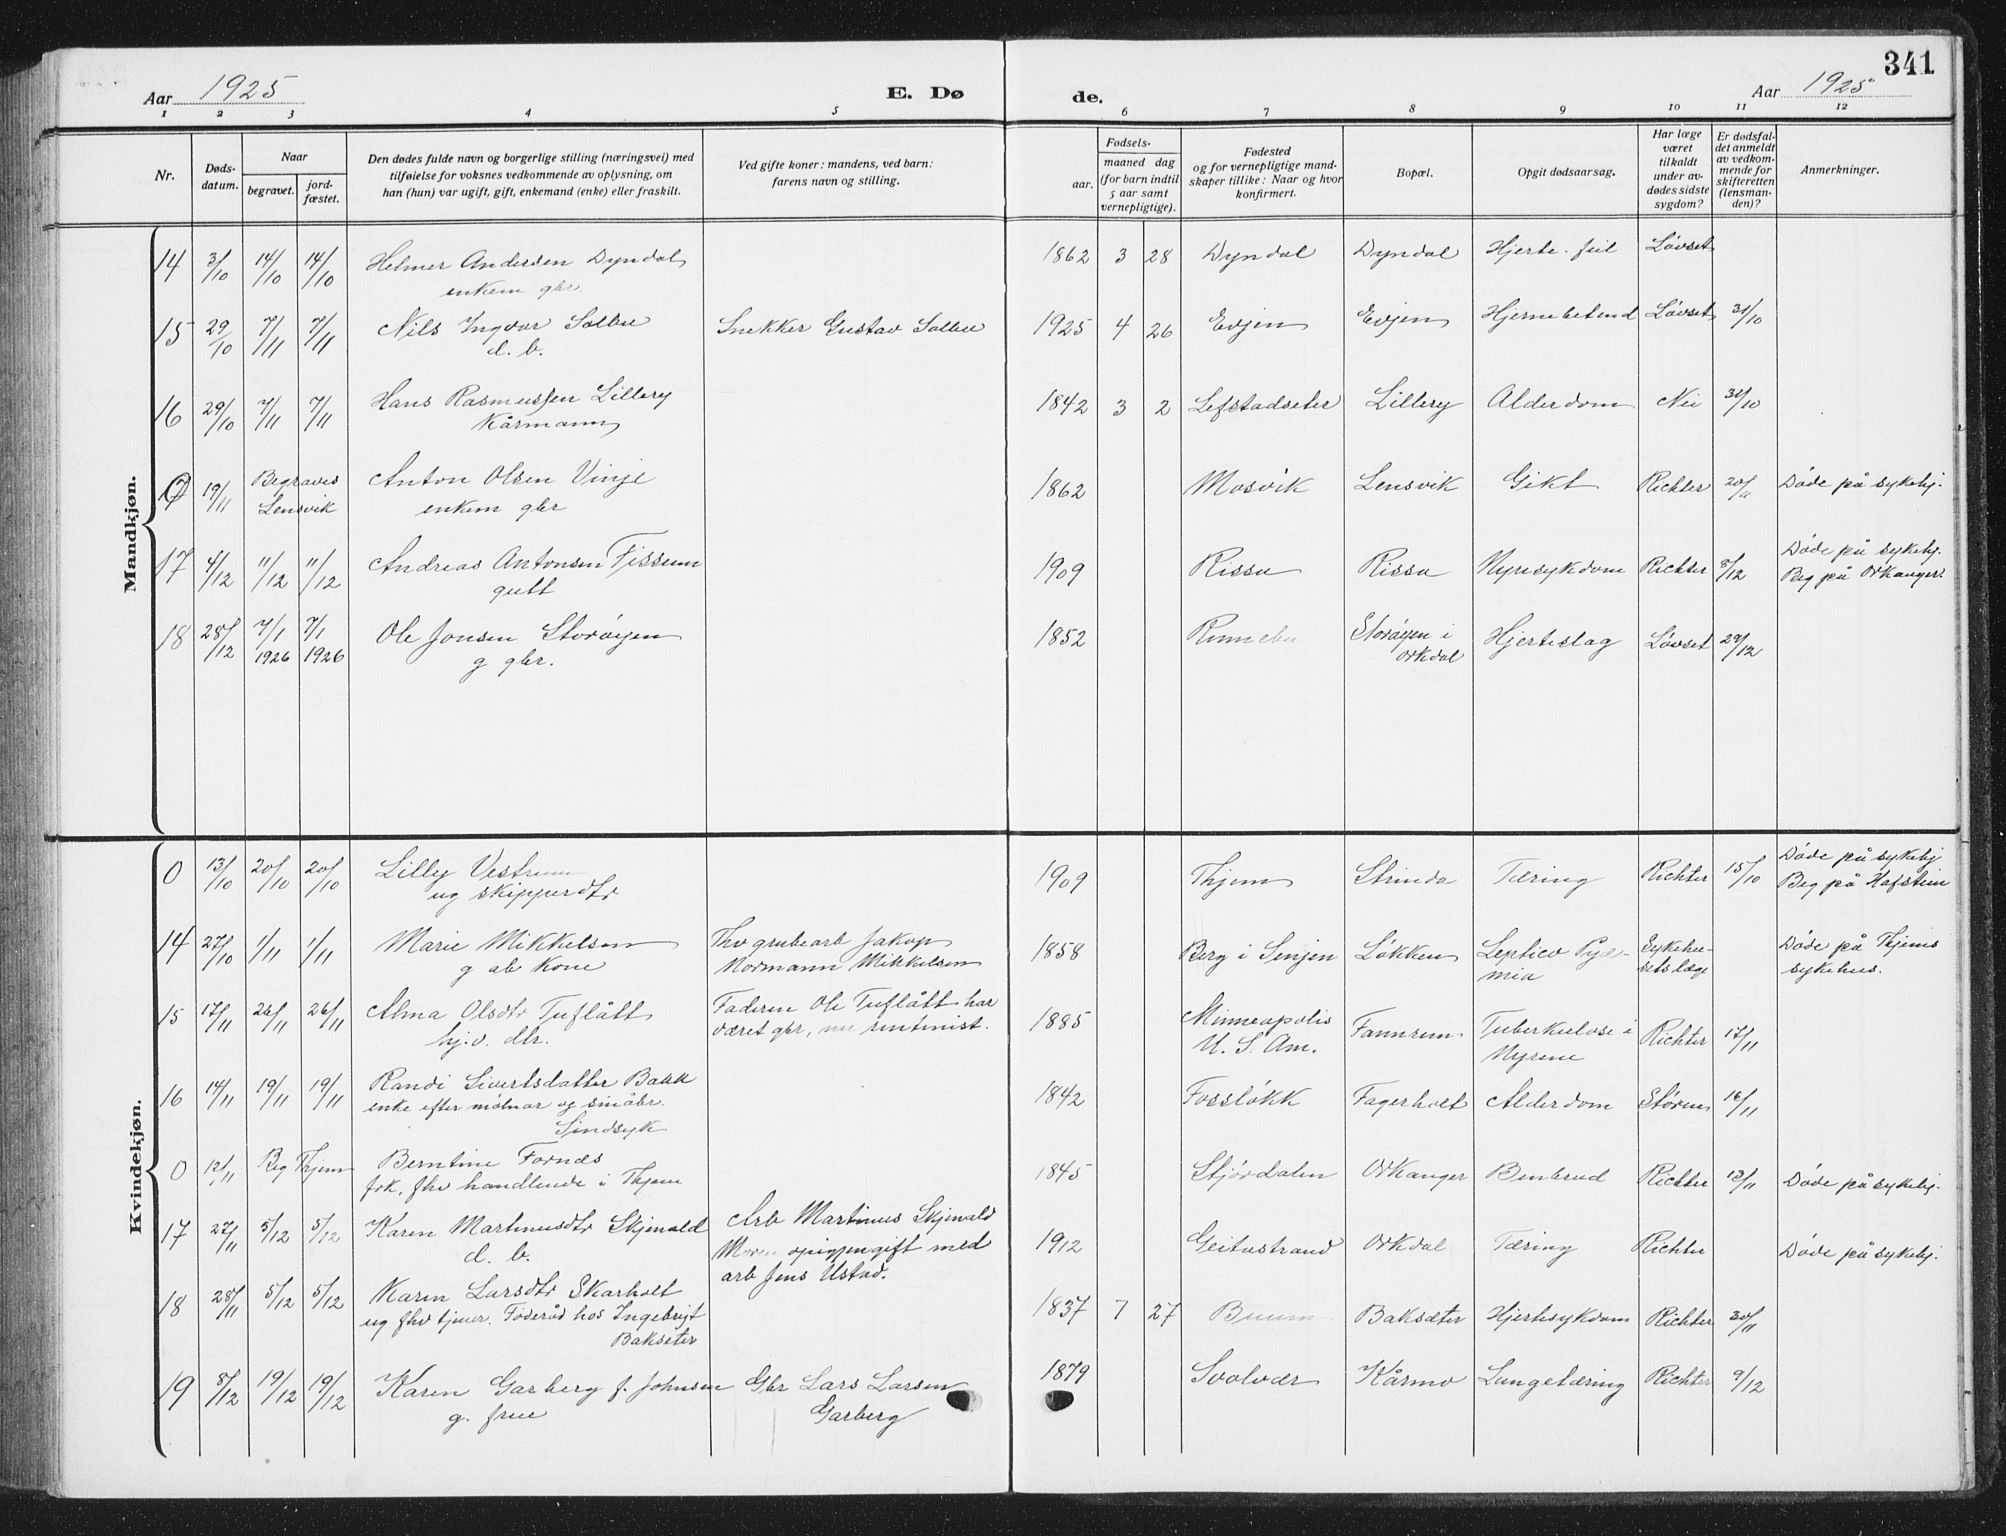 341
Aar 1925
E. Døde.
Aar 1925
1 2 3 4 5 6 7 8 9 10 11 12
Nr.
Dødsdatum.
Naar
begravet.
jordfæstet.
Den dødes fulde navn og borgerlige stilling (næringsvei) med
tilføielse for voksnes vedkommende av oplysning, om
han (hun) var ugift, gift, enkemand (enke) eller fraskilt.
Ved gifte koner: mandens, ved barn:
farens navn og stilling.
Fødsels-
aar.
maaned dag
(for barn indtil
5 aar samt
vernepligtige).
Fødested
og for vernepligtige mand-
skaper tillike: Naar og hvor
konfirmert.
Bopæl.
Opgit dødsaarsag.
Har læge
været
tilkaldt
under av-
dødes sidste
sygdom?
Er dødsfal-
det anmeldt
av vedkom-
mende for
skifteretten
(lensman-
den)?
Anmerkninger.
Mandkjøn.
14 3/10 14/10 14/10 Helmer Andersen Dyndal 1862 3 28 Dyndal Dyndal Hjerte-feil Løvset
enkem gbr.
15 29/10 7/11 7/11 Nils Ingvar Solbu Snekker Gustav Solbu 1925 4 26 Evjen Evjen Hjernebetend Løvset 31/10
d. b.
16 29/10 7/11 7/11 Hans Rasmussen Lillery 1842 3 2 Lefstadseter Lillery Alderdom Nei 31/10
Kårmann
0 19/11 Begraves Lensvik Anton Olsen Vinje 1862 Mosvik Lensvik Gikt Richter 20/11 Døde på sykehj.
enkem gbr
17 4/12 11/12 11/12 Andreas Antonsen Fissum 1909 Rissa Rissa Nyresykdom Richter 8/12 Døde på sykehj.
gutt Beg på Orkanger.
18 28/12 7/1 1926 7/1 1926 Ole Jonsen Storøyen 1852 Rennebu Storøyen i Orkdal Hjerteslag Løvset 29/12
g gbr.
Kvindekjøn.
0 13/10 20/10 20/10 Lilly Vestrum 1909 Thjem Strinda Tæring Richter 15/10 Døde på sykehj
ug skipperdtr Beg på Hafstein
14 27/10 1/11 1/11 Marie Mikkelsen Fhv grubearb Jakop 1858 Berg i Senjen Løkken Septico Pyæ- Sykehu- Døde på Thjems
g ab kone Normann Mikkelsen mia setslæge sykehus.
15 17/11 26/11 26/11 Alma Olsdtr Tuflått Faderen Ole Tuflått har 1885 Minneapolis Fannrem Tuberkulose i Richter 17/11
hj.v. dtr. været gbr, nu rentenist. U. S. Am. Nyrene
16 14/11 19/11 19/11 Randi Sivertsdatter Bakk 1842 Fossløkk Fagerholt Alderdom Støren 16/11
enke efter mølnar og småbr.
Sindsyk
0 12/11 Beg Thjem Berntine Fornæs 1845 Stjørdalen Orkanger Benbrud Richter 13/11 Døde på sykehj.
frk, fhv handlende i Thjem
17 27/11 5/12 5/12 Karen Martinusdtr Skjenald Arb Martinus Skjenald 1912 Geitastrand Orkdal Tæring Richter Døde på sykehj.
d. b. Moren gift med
arb Jens Ustad.
18 28/11 5/12 5/12 Karen Larsdtr Skarholt 1837 7 27 Baksæter Hjertesykdom Richter 30/11
ug fhv tjener. Føderåd hos Ingebrigt
Bakseter
19 8/12 19/12 19/12 Karen Garberg f. Johnsen Gbr Lars Larsen 1879 Svolvær Kårmo Lungetæring Richter 9/12
g. frue Garberg